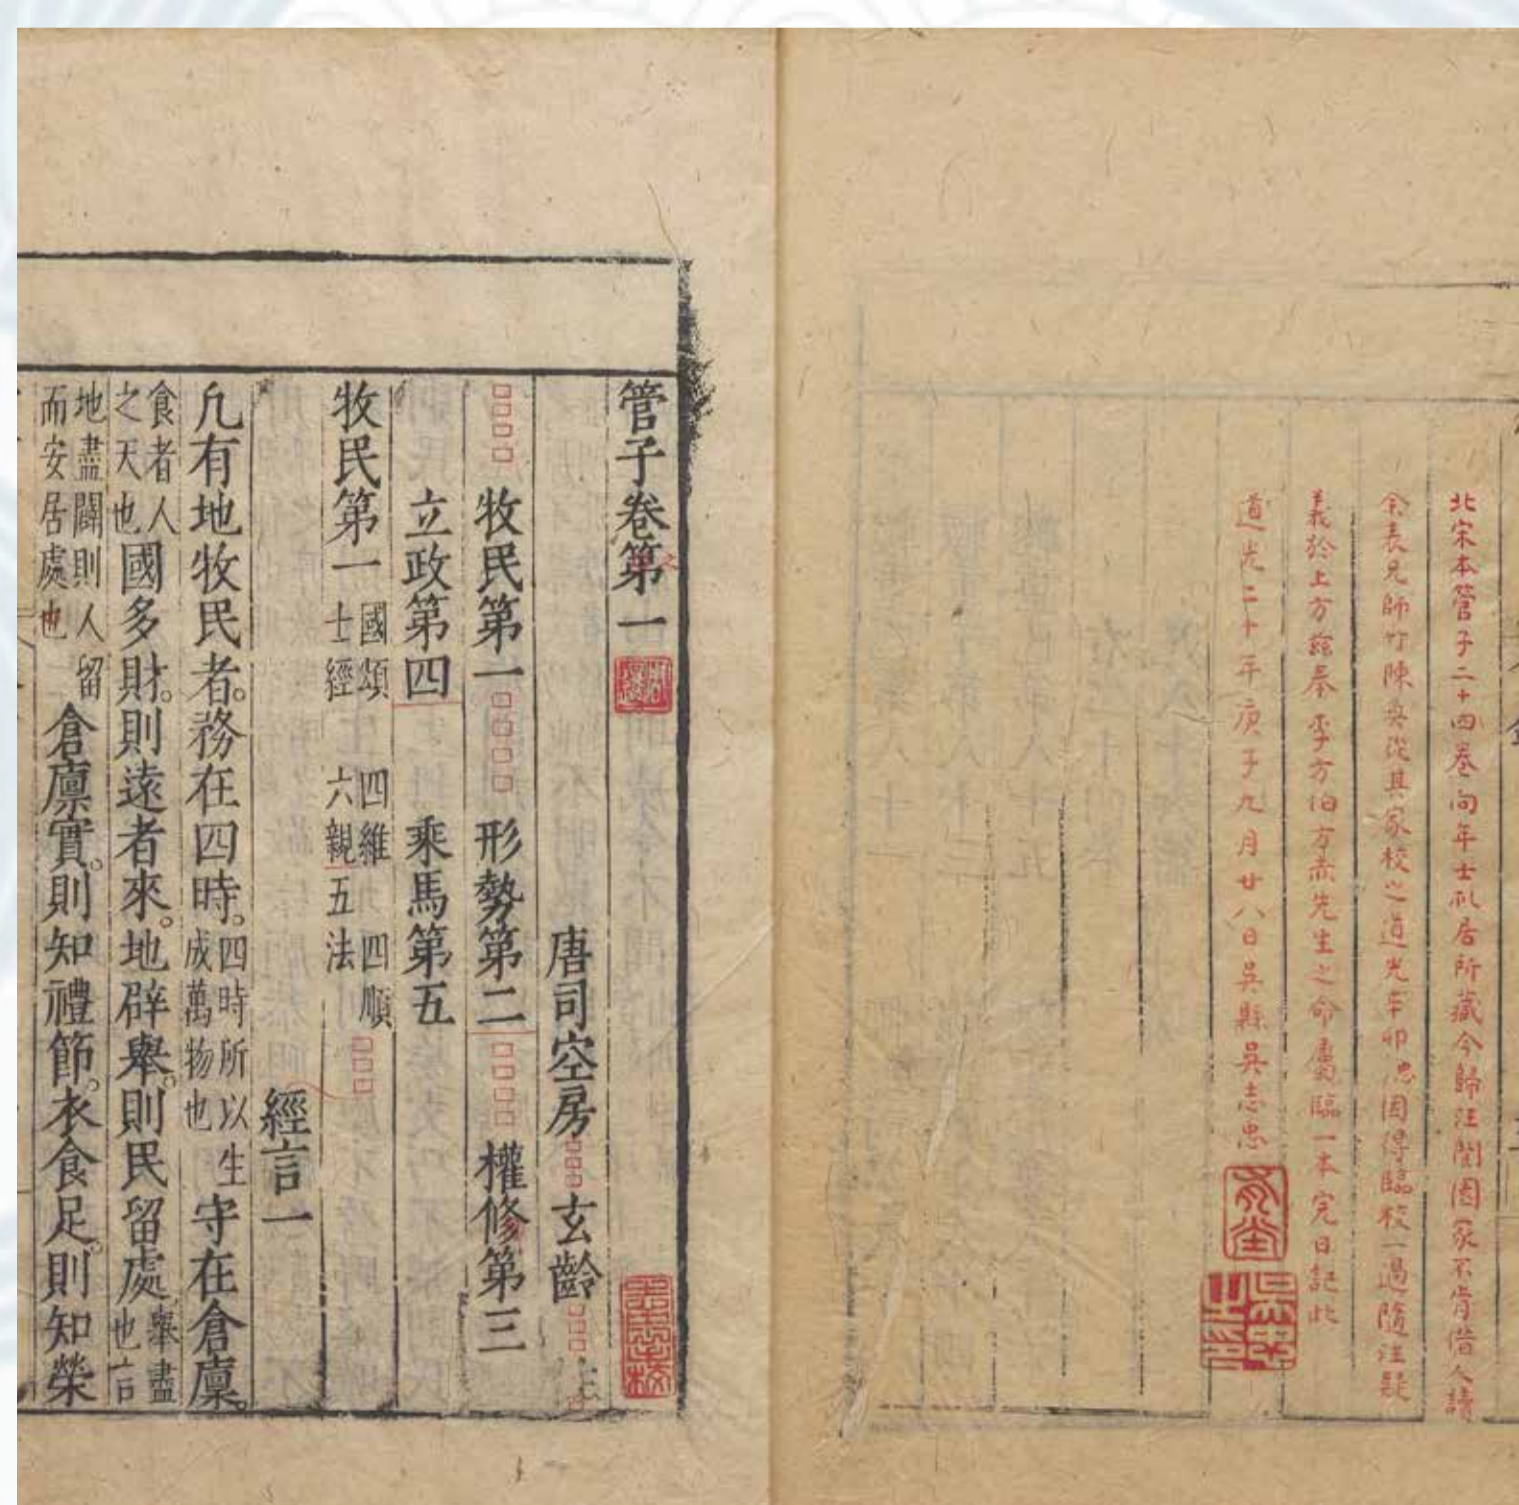 北宋本管子二十四卷向年士礼居所藏今歸汪閬園家不肯借人讀
余表兄師竹陳奐從其家校之道光辛卯忠因得臨校一過隨注疑
義於上方兹奉李方伯方赤先生之命屬臨一本完日記此
道光二十年庚子九月廿八日吳縣吳志忠
志忠之印
管子卷第一
唐司空房玄齡註
牧民第一 形勢第二 權修第三
立政第四 乘馬第五
牧民第一 國頌 四維 四順 士經 六親五法
經言一
凡有地牧民者。務在四時。四時所以生成萬物也 守在倉廩。
食者人之天也國多財。則遠者來。地辟舉。則民留處舉盡也言
地盡闢則人留而安居處也 倉廩實。則知禮節。衣食足。則知榮